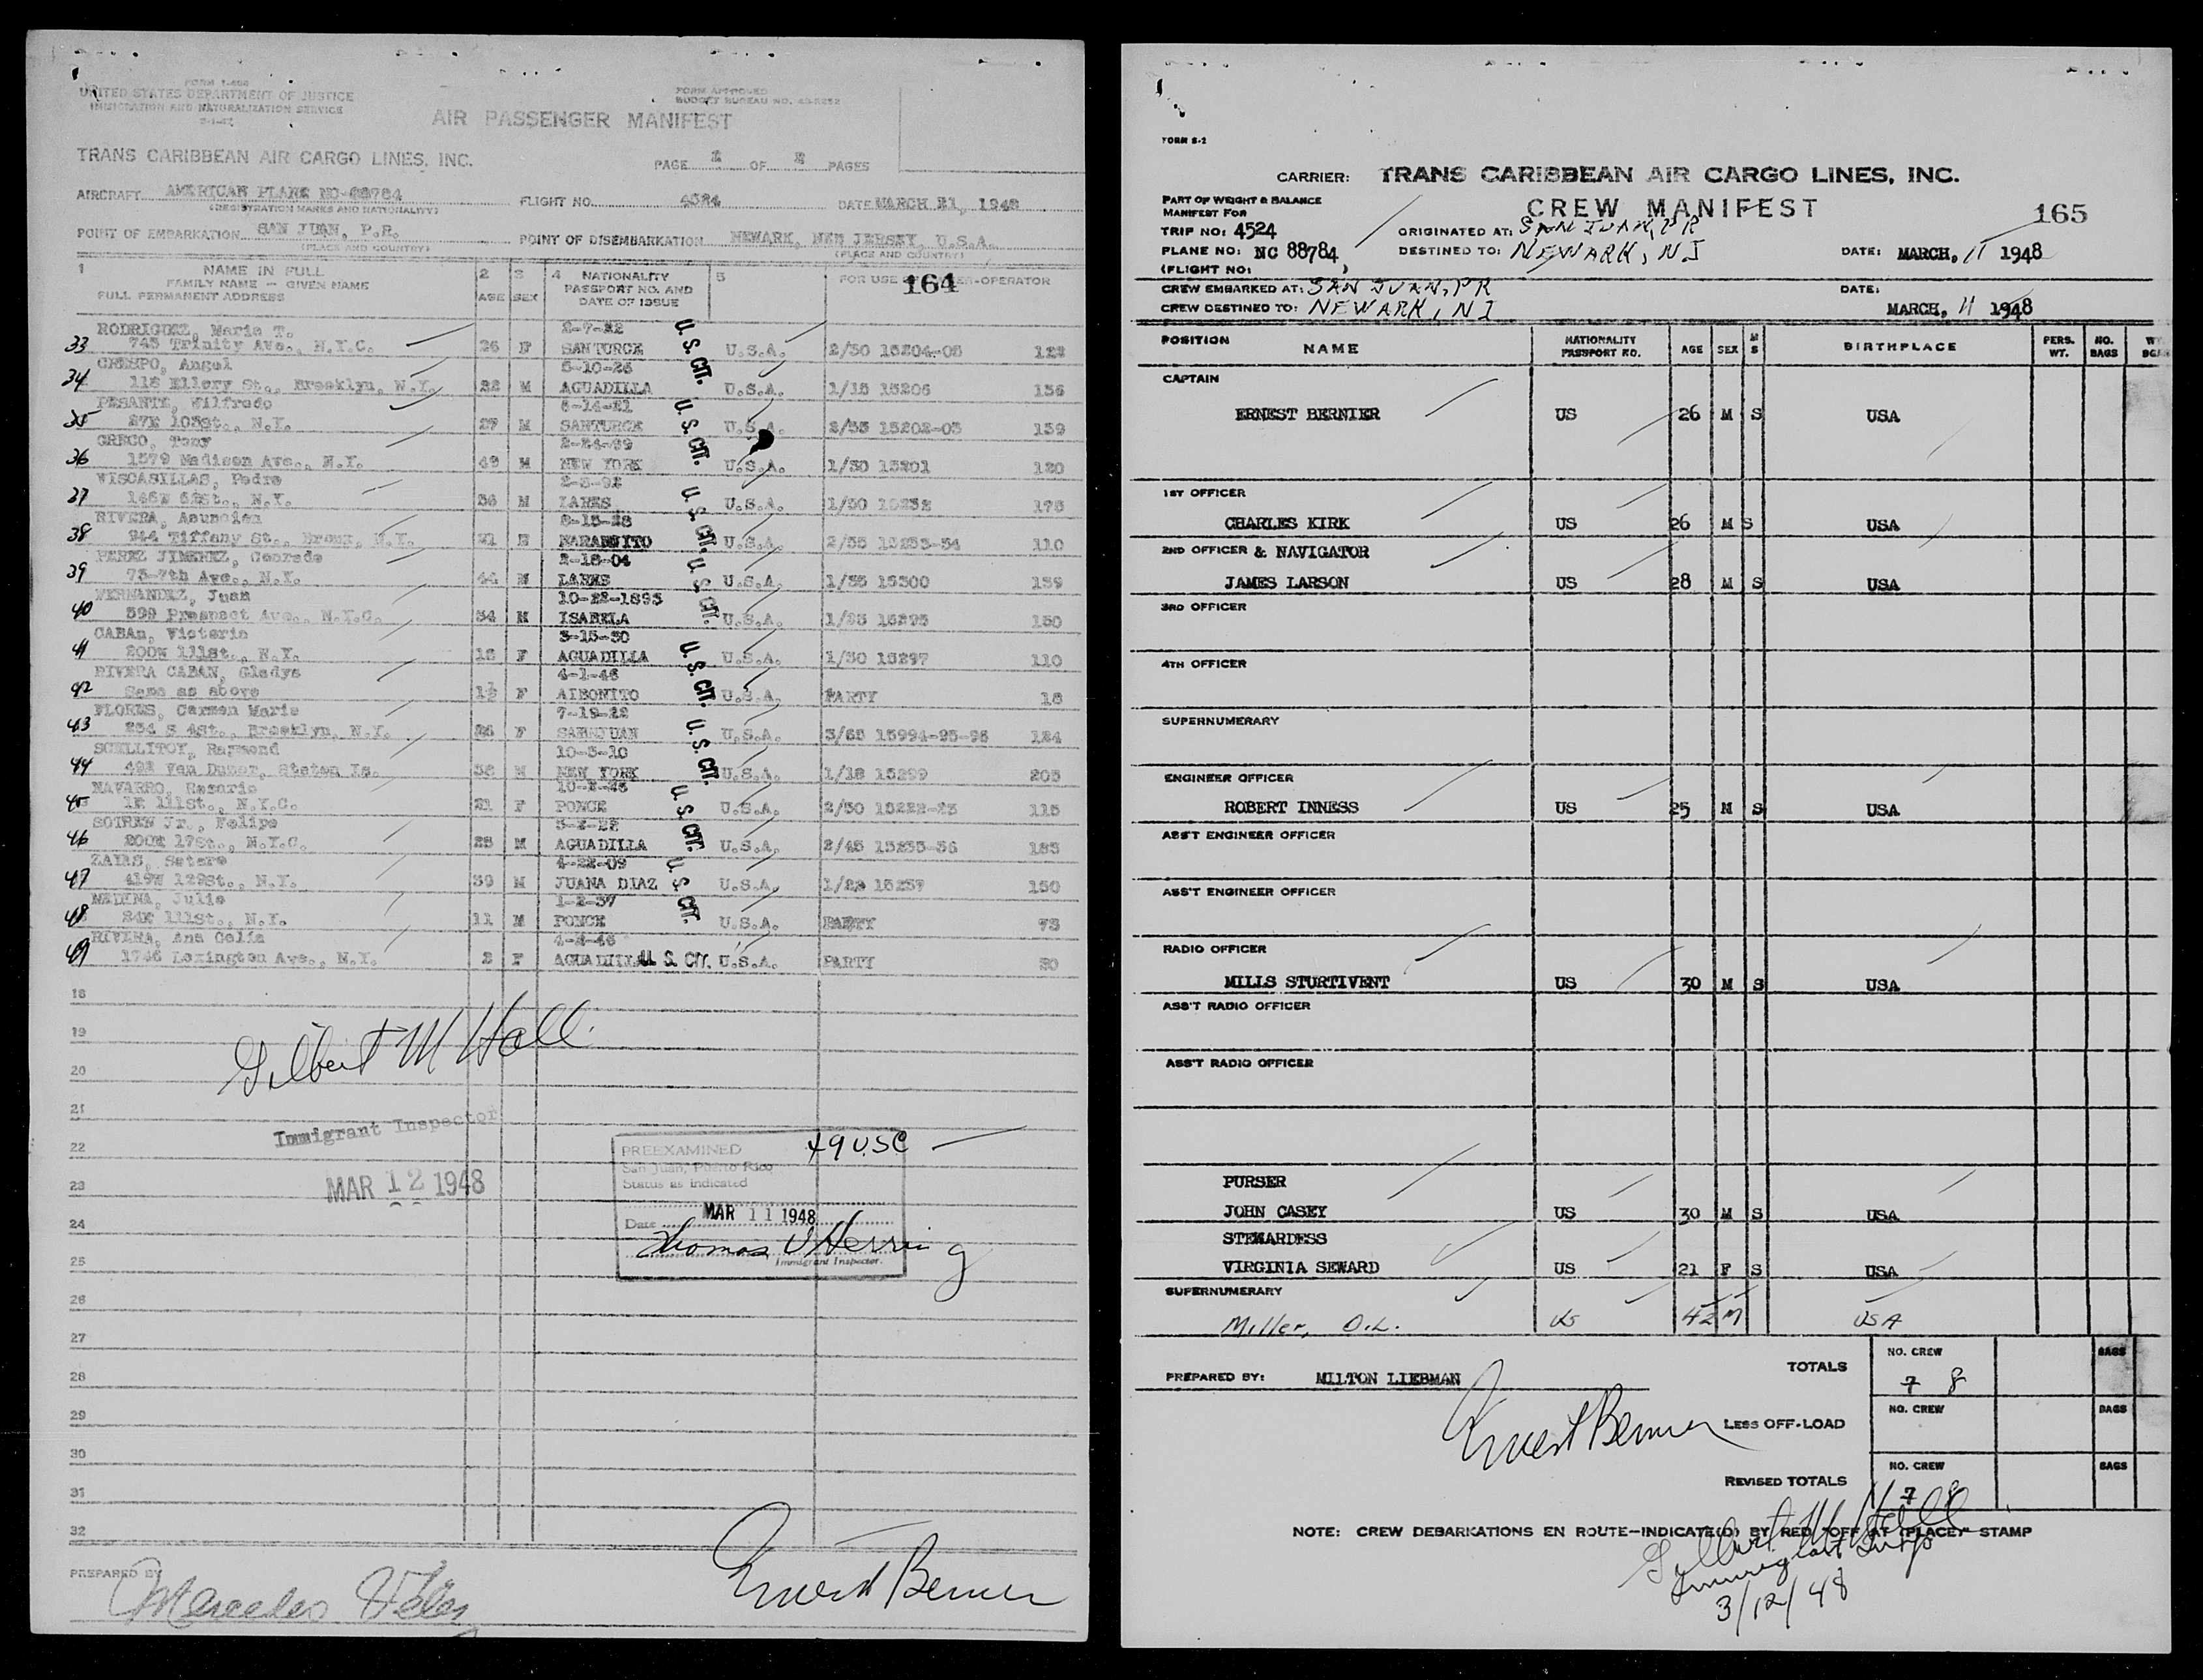 FORM I-466
UNITED STATES DEPARTMENT OF JUSTICE
IMMIGRATION AND NATURALIZATION SERVICE
FORM APPROVED
BUDGET BUREAU NO.
AIR PASSENGER MANIFEST
TRANS CARIBBEAN AIR CARGO LINES, INC.
PAGE 2 OF 2 PAGES
AIRCRAFT AMERICAN PLANE NO-88784
(REGISTRATION MARKS AND NATIONALITY)
FLIGHT NO. 4524
DATE MARCH 11, 1948
POINT OF EMBARKATION SAN JUAN, P.R.
(PLACE AND COUNTRY)
POINT OF DISEMBARKATION NEWARK, NEW JERSEY, U.S.A.
(PLACE AND COUNTRY)
1 NAME IN FULL
FAMILY NAME — GIVEN NAME
FULL PERMANENT ADDRESS
2 AGE
3 SEX
4 NATIONALITY
PASSPORT NO. AND
DATE OF ISSUE
5
FOR USE 164 OPERATOR
RODRIGUEZ, Maria T. 2-7-22
33 745 Trinity Ave., N.Y.C. 26 F SANTURCE U.S. CIT. U.S.A. 2/50 15204-05 122
CRESPO, Angel 5-10-26
34 118 Ellery St., Brooklyn, N.Y. 22 M AGUADILLA U.S.A. 1/15 15206 156
PESANTE, Wilfredo 6-14-21
35 27E 103st., N.Y. 27 M SANTURCE U.S. CIT. U.S.A. 2/55 15202-03 159
GRECO, Tony 2-24-99
36 1579 Madison Ave., N.Y. 49 M NEW YORK U.S.A. 1/30 15201 120
VISCASILLAS, Pedro
37 146W 62st., N.Y. 56 M LARES U.S. CIT. U.S.A. 1/50 15232 175
RIVERA, Asuncion
38 944 Tiffany St., Bronx, N.Y. 21 NARANJITO U.S.A. 2/55 15253-54 110
PEREZ JIMENEZ, Conrado 2-18-04
39 75-7th Ave., N.Y. 44 M LARES U.S. CIT. U.S.A. 1/55 15300 159
FERNANDEZ, Juan 10-22-1893
40 599 Prospect Ave., N.Y.C. 54 M ISABELA U.S.A. 1/25 15295 150
CABAn, Victoria 3-15-30
41 200W 111st., N.Y. 18 F AGUADILLA U.S. CIT. U.S.A. 1/30 15297 110
RIVERA CABAN, Gladys 4-1-46
42 Same as above 1½ F AIBONITO U.S.A. PARTY 18
FLORES, Carmen Maria 7-19-22
43 234 S 4st., Brooklyn, N.Y. 26 F SAN JUAN U.S. CIT. U.S.A. 3/65 15994-95-96 124
Raymond 10-3-10
44 492 Van Duzer, Staten Is. 38 M NEW YORK U.S.A. 1/18 15299 205
NAVARRO, Rosario
45 1E 111st., N.Y.C. 21 F PONCE U.S. CIT. U.S.A. 2/50 15222-23 115
Jr., Felipe 5-2-22
46 200E 17St., N.Y.C. 25 M AGUADILLA U.S.A. 2/45 15235-36 185
ZAYAS, Sotero 4-22-09
47 419W 129St., N.Y. 39 M JUANA DIAZ U.S. CIT. U.S.A. 1/22 15237 150
MEDINA, Julio 1-2-37
48 24E 111St., N.Y. 11 M PONCE U.S.A. PARTY 73
RIVERA, Ana Celia 4-2-46
49 1746 Lexington Ave., N.Y. 2 F AGUADILLA U S CIT. U.S.A. PARTY 30
18
19
Gilbert M Hall
20
21
Immigrant Inspector
22
MAR 12 1948
23
24
25
26
27
28
29
30
31
32
PREEXAMINED 49 USC
San Juan, Puerto Rico
Status as indicated
Date MAR 11 1948
Thomas J Herring
Immigrant Inspector.
PREPARED BY Mercedes Velez
Ernest Bernier
FORM S-2
CARRIER: TRANS CARIBBEAN AIR CARGO LINES, INC.
PART OF WEIGHT & BALANCE
MANIFEST FOR
CREW MANIFEST 165
TRIP NO: 4524 ORIGINATED AT: SAN JUAN, PR
PLANE NO: NC 88784 DESTINED TO: NEWARK, NJ DATE: MARCH, 11 1948
(FLIGHT NO: )
CREW EMBARKED AT: SAN JUAN, PR DATE:
CREW DESTINED TO: NEWARK, NJ MARCH, 11 1948
POSITION NAME NATIONALITY PASSPORT NO. AGE SEX M S BIRTHPLACE PERS. WT. NO. BAGS
CAPTAIN
ERNEST BERNIER US 26 M S USA
1ST OFFICER
CHARLES KIRK US 26 M S USA
2ND OFFICER & NAVIGATOR
JAMES LARSON US 28 M S USA
3RD OFFICER
4TH OFFICER
SUPERNUMERARY
ENGINEER OFFICER
ROBERT INNESS US 25 M S USA
ASS'T ENGINEER OFFICER
ASS'T ENGINEER OFFICER
RADIO OFFICER
MILLS STURTIVENT US 30 M S USA
ASS'T RADIO OFFICER
ASS'T RADIO OFFICER
PURSER
JOHN CASEY US 30 M S USA
STEWARDESS
VIRGINIA SEWARD US 21 F S USA
SUPERNUMERARY
Miller, O.L. US 42 M USA
PREPARED BY: MILTON LIEBMAN
TOTALS NO. CREW 7 8 BAGS
Ernest Bernier
LESS OFF-LOAD NO. CREW BAGS
REVISED TOTALS NO. CREW 7 8 BAGS
NOTE: CREW DEBARKATIONS EN ROUTE—INDICATE(D) BY RED "OFF AT (PLACE)" STAMP
Gilbert M Hall
Immigrant Insp
3/12/48